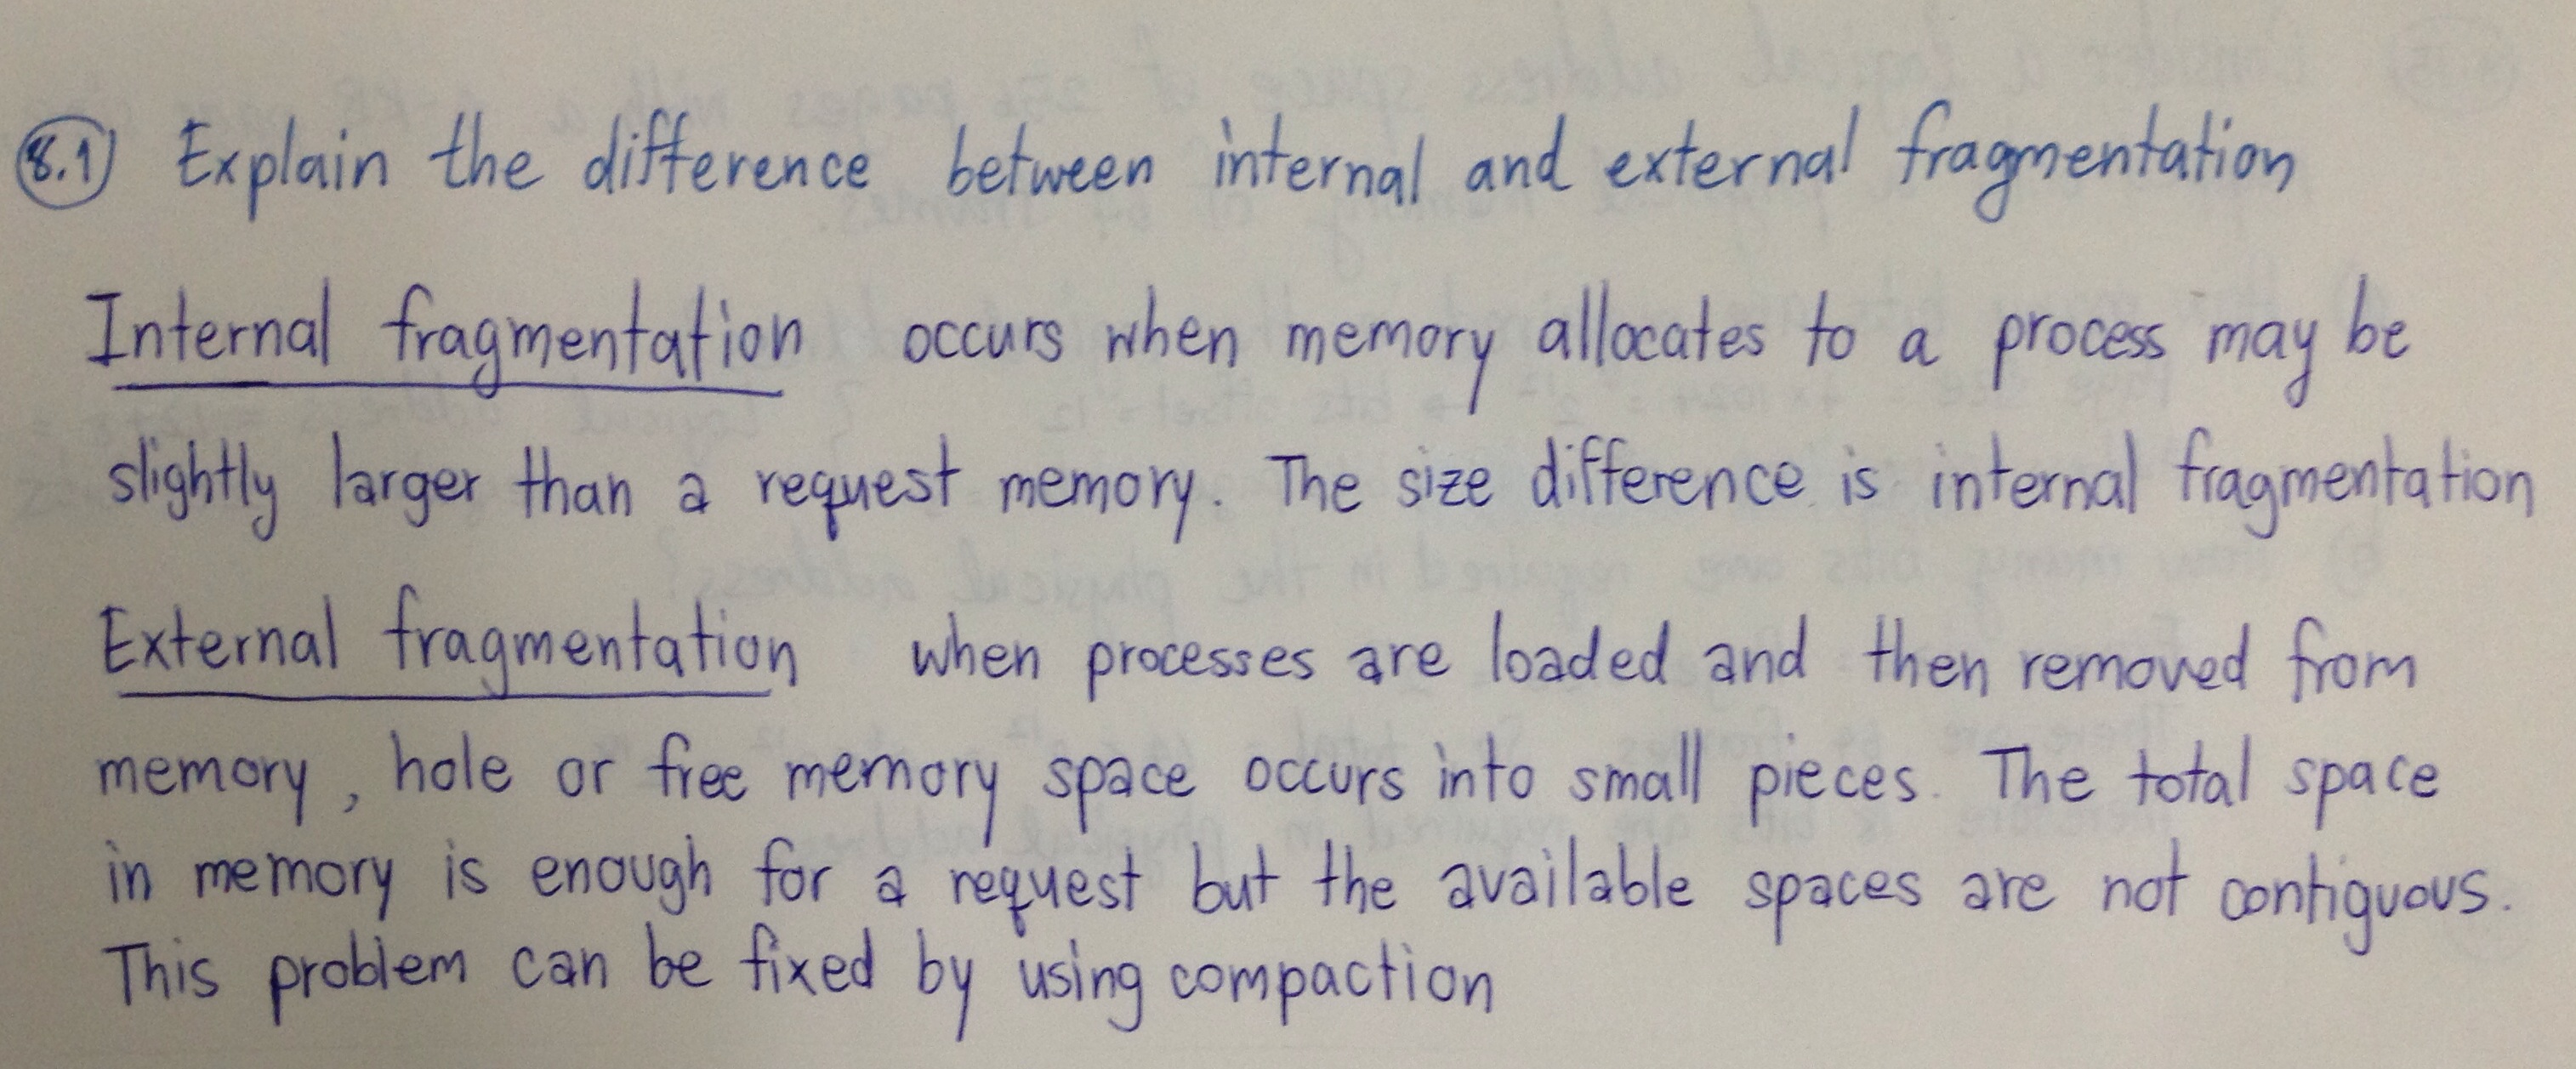 8.1 Explain the difference between internal and external fragmentation
Internal fragmentation occurs when memory allocates to a process may be
slightly larger than a request memory. The size difference is internal fragmentation
External fragmentation when processes are loaded and then removed from
memory, hole or free memory space occurs into small pieces. The total space
in memory is enough for a request but the available spaces are not contiguous.
This problem can be fixed by using compaction